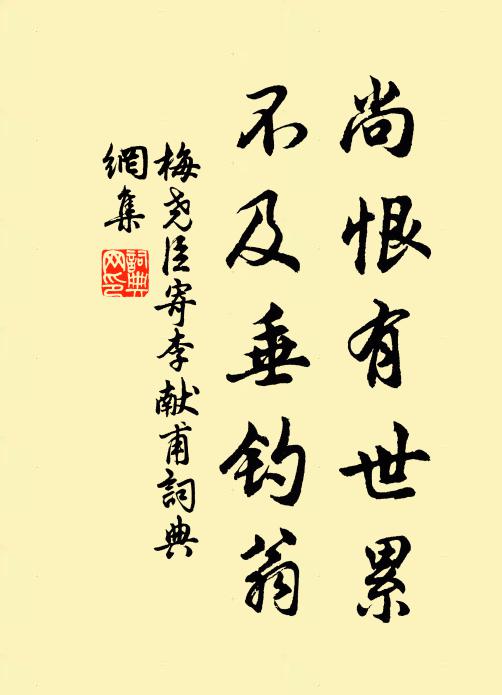 尚恨有世累
不及垂钓翁
梅尧臣寄李献甫詞典
網集
詞典网印